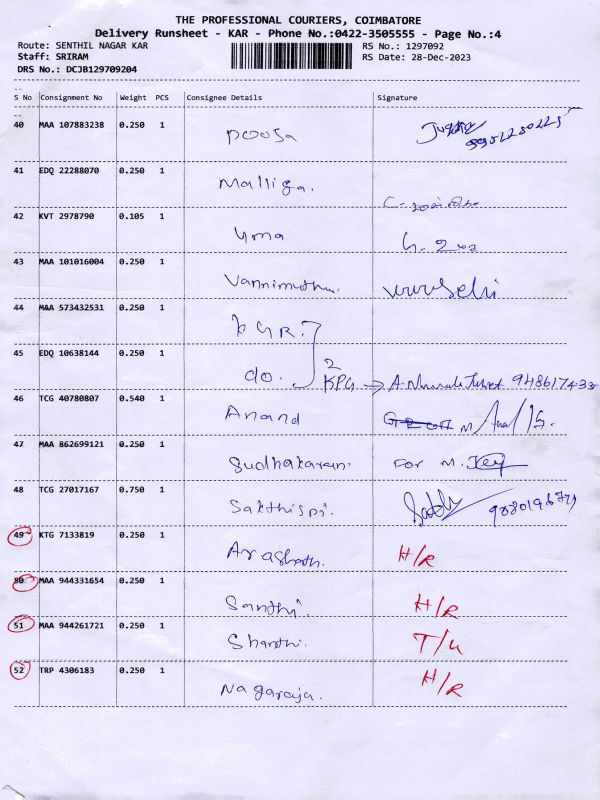 THE PROFESSIONAL COURIERS, COIMBATORE
Delivery Runsheet - KAR - Phone No.:0422-3505555 - Page No.:4
Route: SENTHIL NAGAR KAR RS No.: 1297092
Staff: SRIRAM RS Date: 28-Dec-2023
DRS No.: DCJB129709204
S No Consignment No Weight PCS Consignee Details Signature
40 MAA 107883238 0.250 1 Poosa
41 EDQ 22288070 0.250 1 Malliga.
42 KVT 2978790 0.105 1 Uma
43 MAA 101016004 0.250 1 Vannimuthu.
44 MAA 573432531 0.250 1 KGR.
45 EDQ 10638144 0.250 1 do. 2 KPG → A.
46 TCG 40780807 0.540 1 Anand
47 MAA 862699121 0.250 1 Sudhakaran. For M.
48 TCG 27017167 0.750 1
49 KTG 7133819 0.250 1 H/R
50 MAA 944331654 0.250 1 Santhi. H/R
51 MAA 944261721 0.250 1 Shanthi. T/L
52 TRP 4306183 0.250 1 Nagaraja. H/R